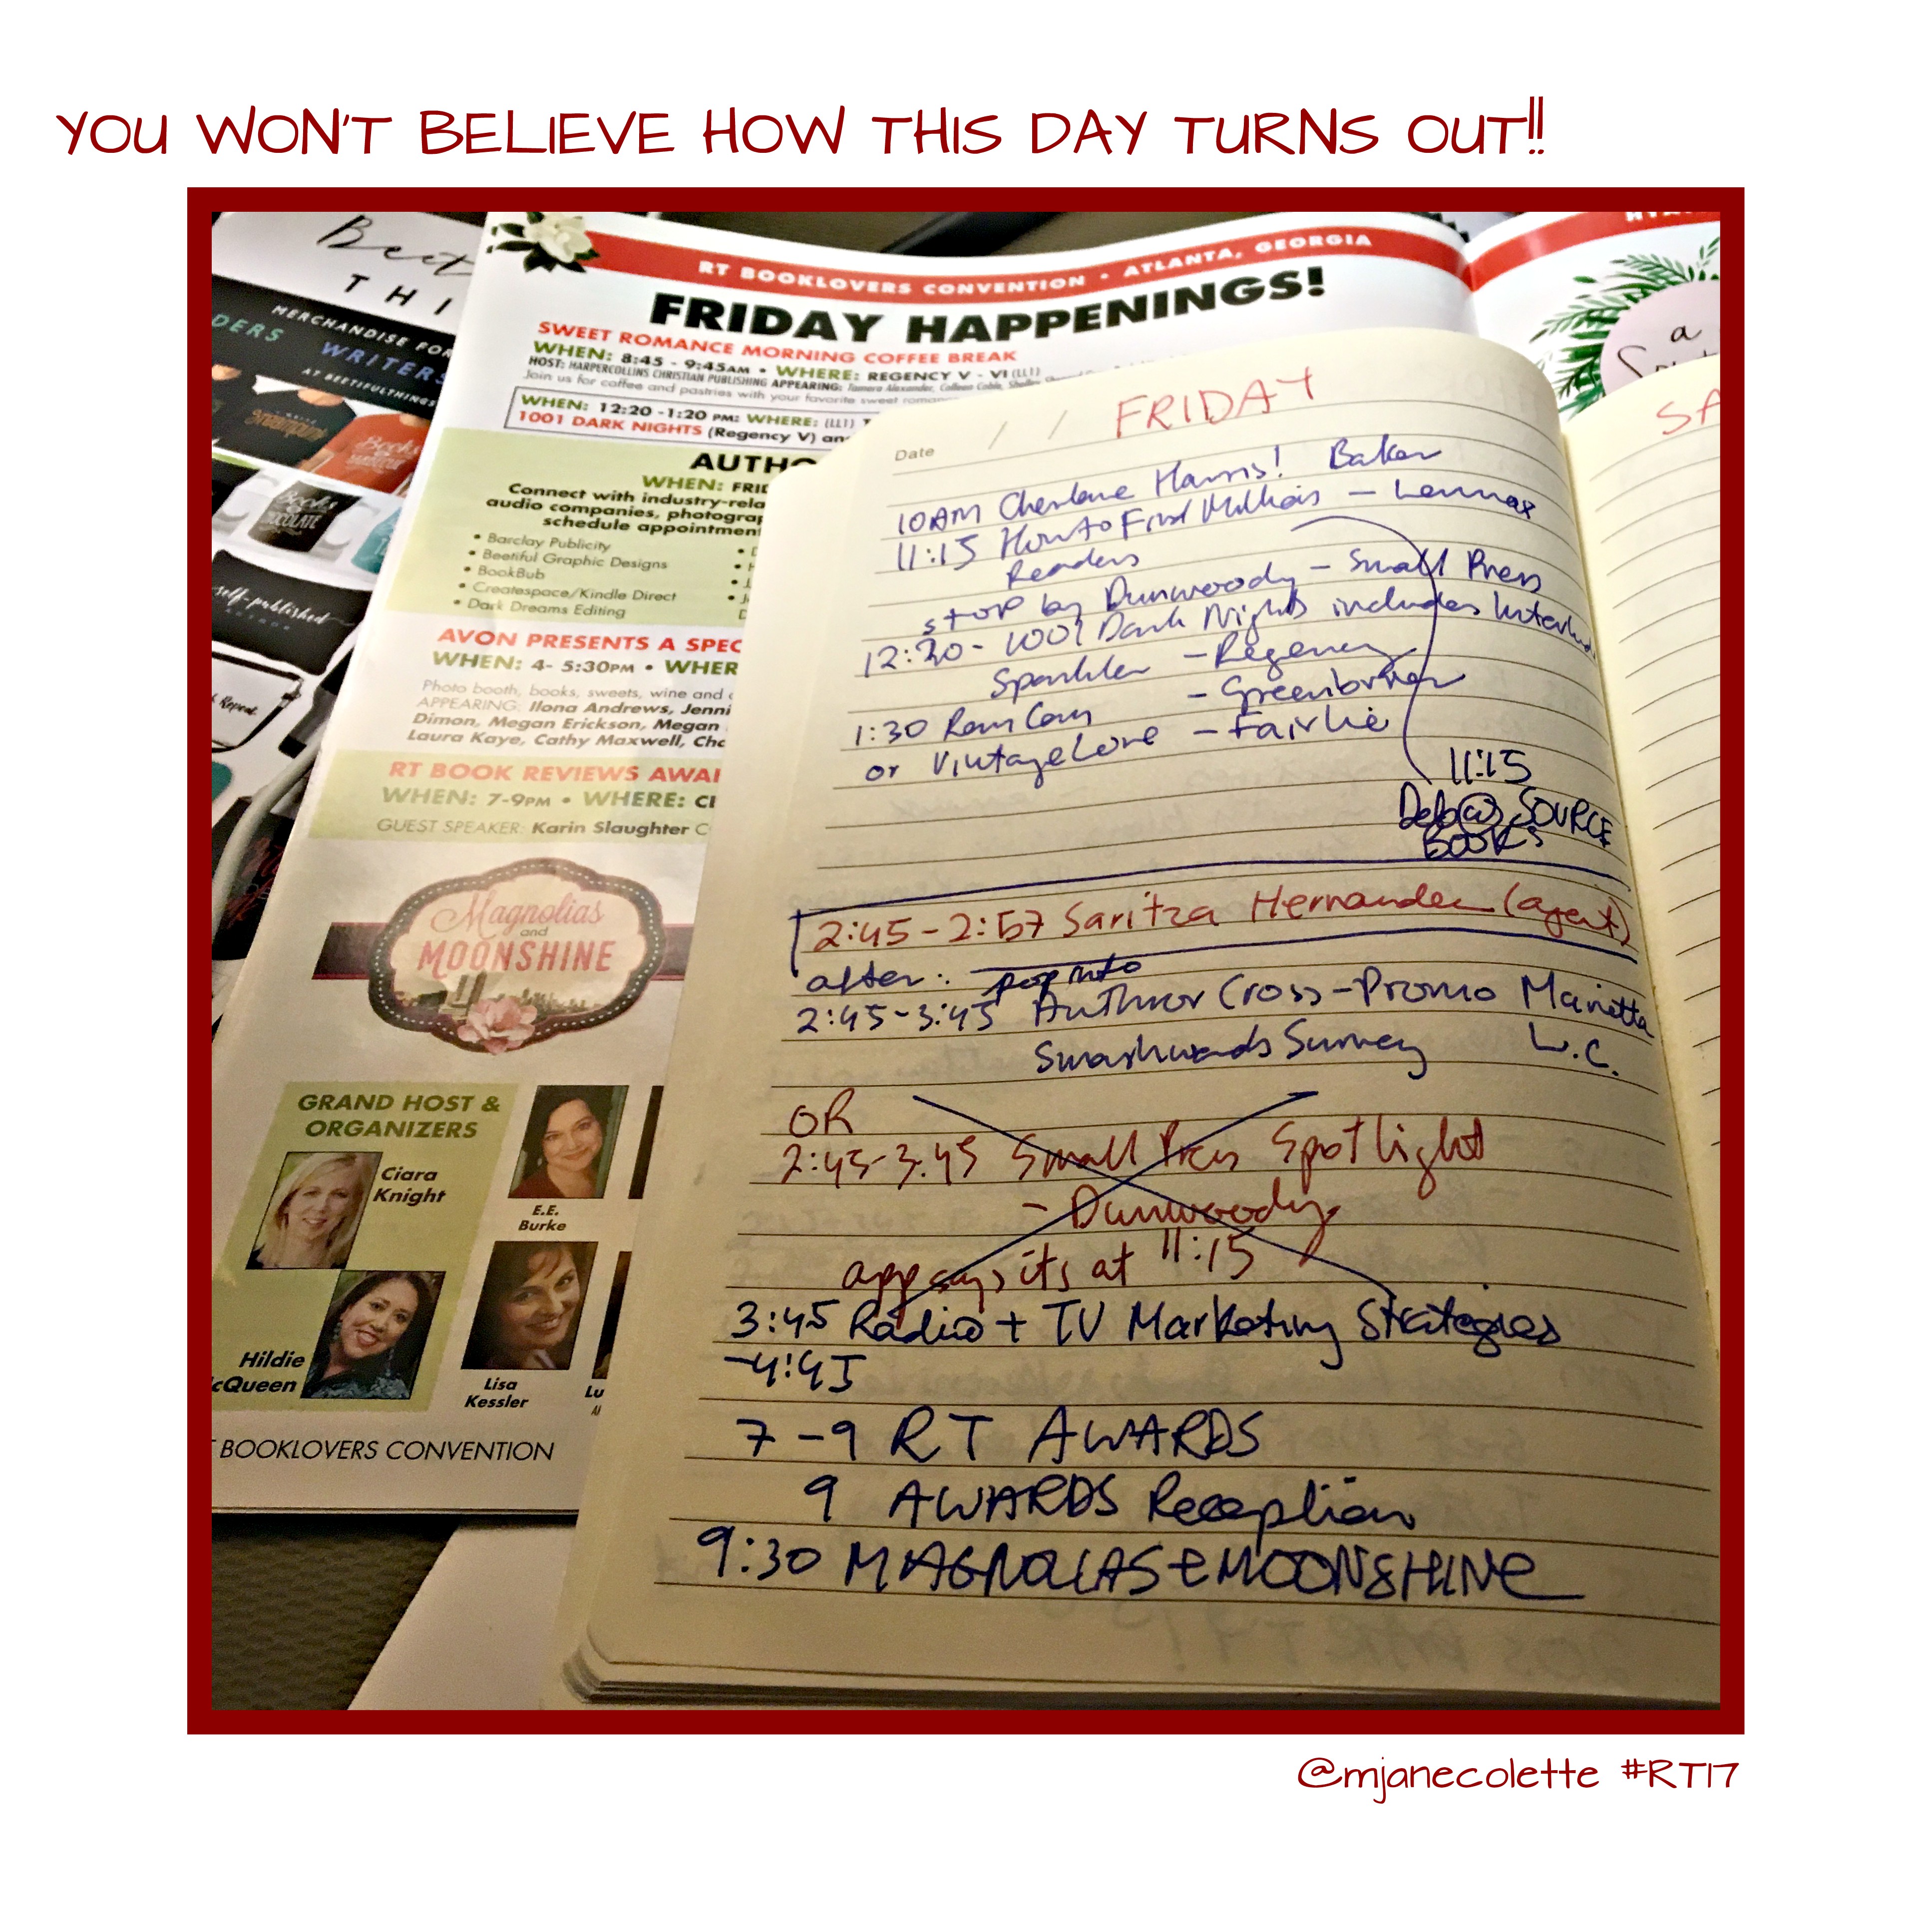 YOU WON'T BELIEVE HOW THIS DAY TURNS OUT!!
Beet
THI
MERCHANDISE FOR
DERS WRITERS
AT BEETIFULTHINGS
Books
CHOCOLATE
self-published
Repeat.
RT BOOKLOVERS CONVENTION • ATLANTA, GEORGIA
FRIDAY HAPPENINGS!
SWEET ROMANCE MORNING COFFEE BREAK
WHEN: 8:45 - 9:45AM • WHERE: REGENCY V - VI (LL1)
HOST: HARPERCOLLINS CHRISTIAN PUBLISHING APPEARING: Tamera Alexander, Colleen Coble,
Join us for coffee and pastries with your favorite sweet
WHEN: 12:20 -1:20 PM: WHERE: (LL1)
1001 DARK NIGHTS (Regency V) an
AUTHO
WHEN: FRID
Connect with industry-rela
audio companies, photograp
schedule appointmen
• Barclay Publicity
• Beetiful Graphic Designs
• BookBub
• Createspace/Kindle Direct
• Dark Dreams Editing
AVON PRESENTS A SPEC
WHEN: 4- 5:30PM • WHER
Photo booth, books, sweets, wine and
APPEARING: Ilona Andrews, Jenni
Dimon, Megan Erickson, Megan
Laura Kaye, Cathy Maxwell, Cha
RT BOOK REVIEWS AWAR
WHEN: 7-9PM • WHERE: CE
GUEST SPEAKER: Karin Slaughter
Magnolias
and
MOONSHINE
GRAND HOST &
ORGANIZERS
Ciara
Knight
E.E.
Burke
Hildie
cQueen
Lisa
Kessler
Lu
BOOKLOVERS CONVENTION
a
SA
Date / / FRIDAY
10AM Charlaine Harris! Baker
11:15 How to Find Millions – Lennox
Readers
stop by Dunwoody – Small Press
12:30 - 1001 Dark Nights includes
– Regency
– Greenbriar
1:30 Rom Com
or Vintage Love – Fairlie
11:15
Deb@SOURCE
BOOKS
2:45 - 2:57 Saritza Hernandez (agent)
after: pop into
2:45-3:45 Author Cross-Promo Marietta
Smashwords Survey L.C.
OR
2:45-3.45 Small Press Spotlight
- Dunwoody
app says its at 11:15
3:45 Radio + TV Marketing Strategies
-4:45
7-9 RT AWARDS
9 AWARDS Reception
9:30 MAGNOLIAS + MOONSHINE
@mjanecolette #RT17